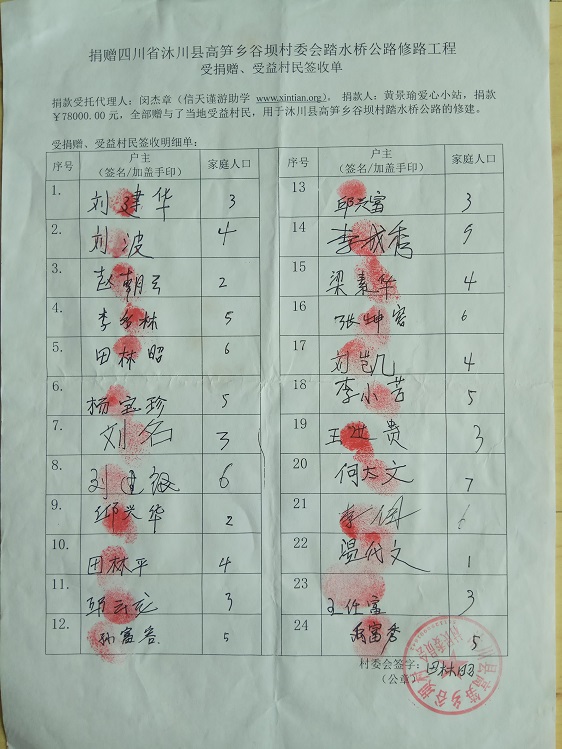 捐赠四川省沐川县高笋乡谷坝村委会踏水桥公路修路工程
受捐赠、受益村民签收单
捐款受托代理人：闵杰章（信天谨游助学 www.xintian.org），捐款人：黄景瑜爱心小站，捐款
￥78000.00 元，全部赠与了当地受益村民，用于沐川县高笋乡谷坝村踏水桥公路的修建。
受捐赠、受益村民签收明细单：
序号 户主（签名/加盖手印） 家庭人口
1. 刘建华 3
2. 刘波 4
3. 赵朝云 2
4. 李乡林 5
5. 田林昭 6
6. 杨宝珍 5
7. 刘名 3
8. 刘建 6
9. 邱兴华 2
10. 田林平 4
11. 3
12. 孙富容 5
序号 户主（签名/加盖手印） 家庭人口
13 邱兴富 3
14 李成秀
15 梁素华 4
16 张坤容 6
17 刘凯几 4
18 李小芳 5
19 王进贵 3
20 何太文 7
21 李 6
22 温代文 1
23 王仕富 3
24 富秀 5
村委会签字：田林昭
（公章）